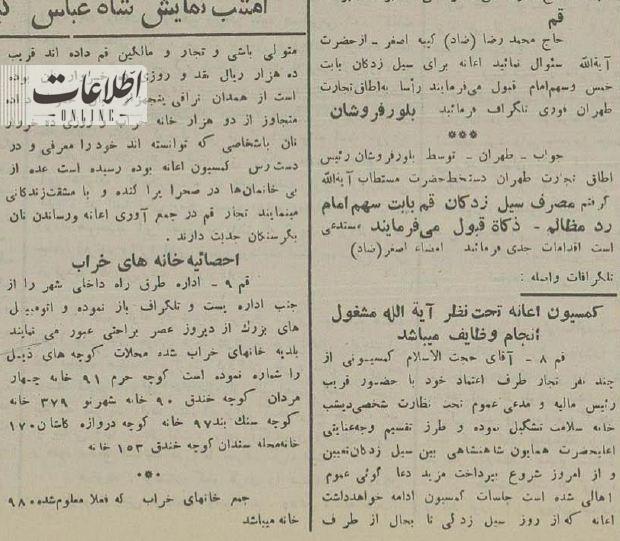 امشب نمایش شاه عباس
قم
حاج محمد رضا (ضاد) کپیه اصغر - ازحضرت
آیةالله سئوال نمائید اعانه برای سیل زدگان بابت
خمس وسهم امام قبول میفرمایند رأسا به اطاق تجارت
طهران فوری تلگراف فرمائید بلورفروشان
***
جواب - طهران - توسط بلورفروشان رئیس
اطاق تجارت طهران دستخط حضرت مستطاب آیةالله
گرفتم مصرف سیل زدگان قم بابت سهم امام
رد مظالم - ذکاة قبول می‌فرمایند مستدعی
است اقدامات جدی فرمائید امضاء اصغر(ضاد)
تلگرافات واصله :
کمسیون اعانه تحت نظر آیة الله مشغول
انجام وظایف میباشد
قم ۸ - آقای حجت الاسلام کمسیونی از
چند نفر تجار طرف اعتماد خود با حضور قریب
رئیس مالیه و مدعی عموم تحت نظارت شخصی دیشب
خانه سلامت تشکیل نموده و طرز تقسیم وجه عنایتی
اعلیحضرت همایون شاهنشاهی بین سیل زدگان تعیین
و از امروز شروع بپرداخت مزید دعا گوئی عموم
اهالی شده است جلسات کمسیون ادامه خواهد داشت
اعانه که از روز سیل زدگی تا بحال از طرف
متولی باشی و تجار و مالکین قم داده اند قریب
ده هزار ریال نقد و روزی خروار نان بوده
است از همدان نراقی پنجهزار داده
متجاوز از دو هزار خانه خراب و روزی ده خروار
نان باشخاصی که توانسته اند خود را معرفی و در
دست رس کمسیون اعانه بوده رسیده است عده از
بی خانمان‌ها در صحرا پرا کنده و با مشقت زندگانی
مینمایند تجار قم در جمع آوری اعانه ورساندن نان
بگرسنگان جدیت دارند .
احصائیه خانه های خراب
قم ۹ - اداره طرق راه داخلی شهر را از
جنب اداره پست و تلگراف باز نموده و اتومبیل
های بزرگ از دیروز عصر براحتی عبور می نمایند
بلدیه خانهای خراب شده محلات کوچه های ذیل
را شماره نموده است کوچه حرم ۹۱ خانه چهار
مردان کوچه خندق ۹۰ خانه شهرنو ۳۷۹ خانه
کوچه سنك بند ۹۷ خانه کوچه دروازه کاشان ۱۷۰
خانه محله سندان کوچه خندق ۱۵۳ خانه
***
جمع خانهای خراب که فعلا معلوم شده ۹۸۰
خانه میباشد
اطلاعات
ONLINE